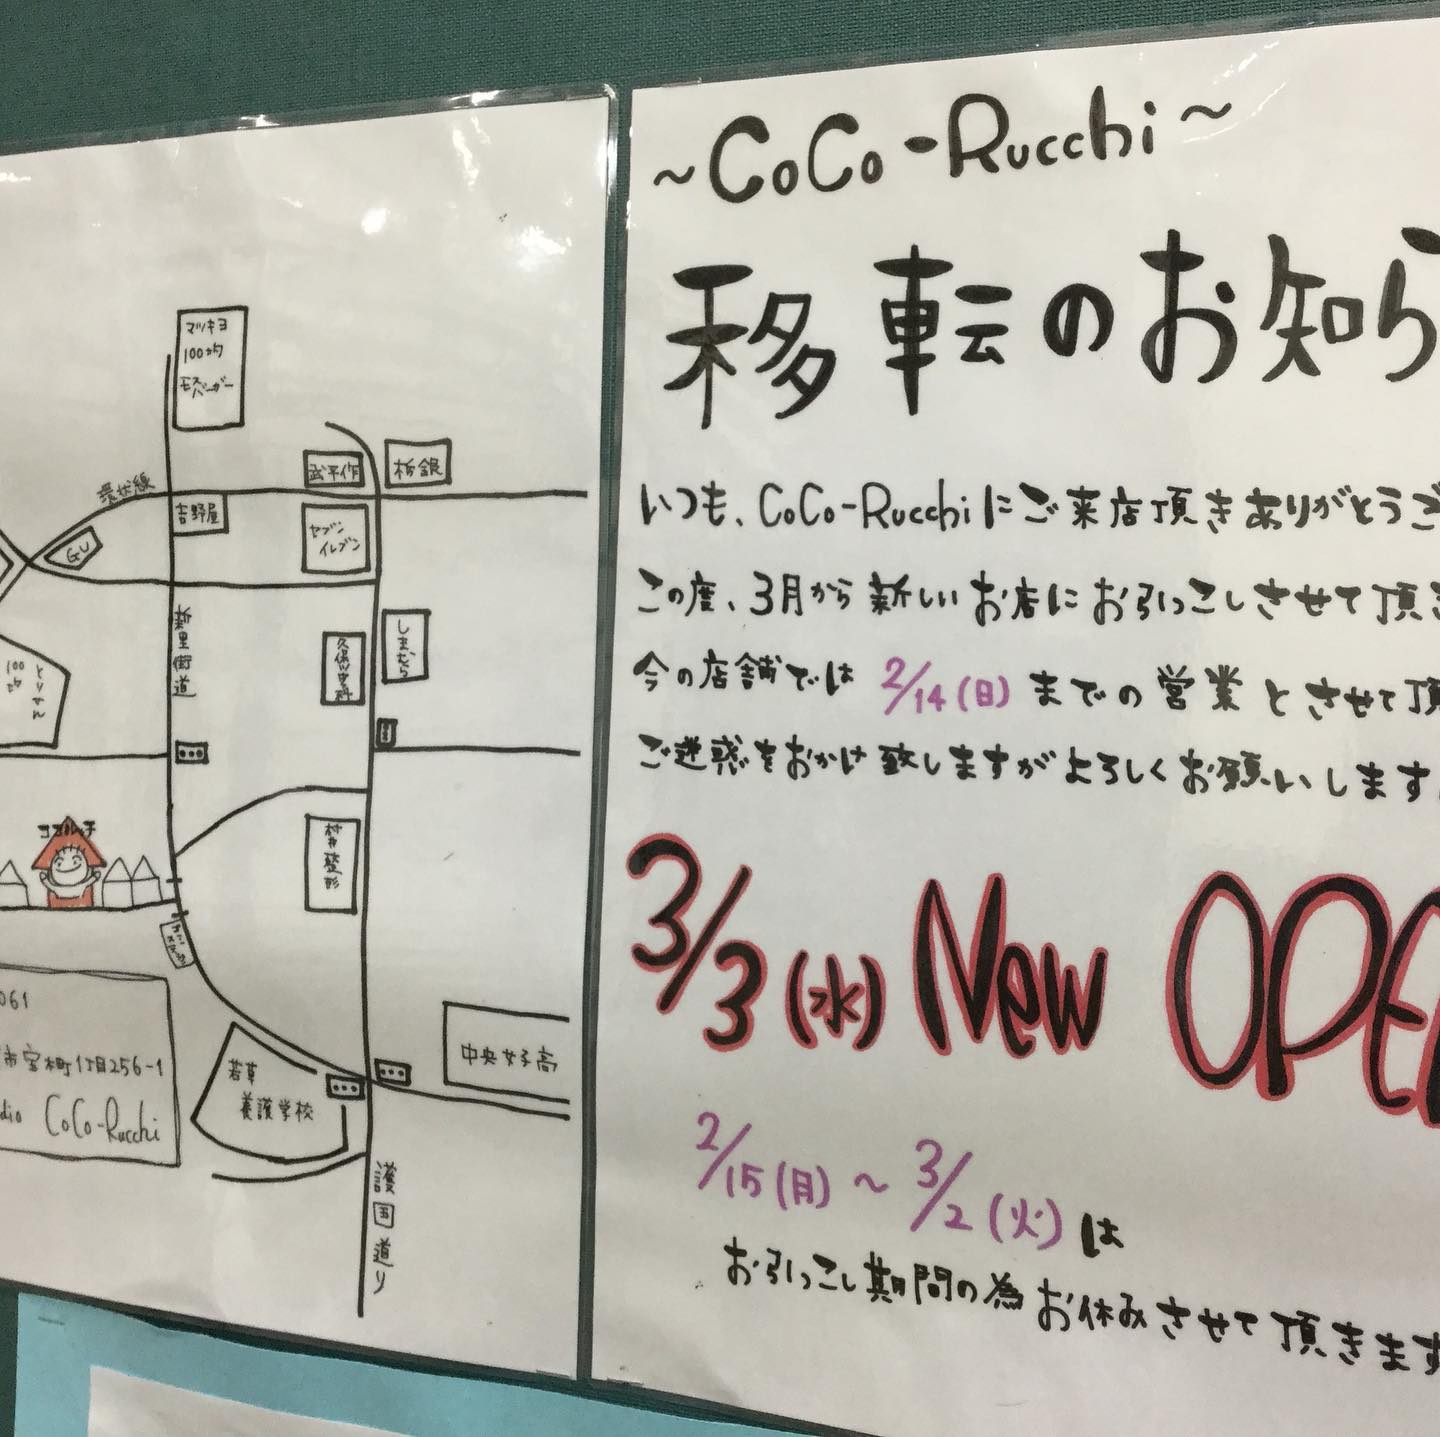 マツキヨ
100均
モスバーガー
武平作
栃銀
環状線
吉野屋
セブン
イレブン
GU
新里街道
しまむら
久保
とりせん
100均
ココルッチ
村井整形
061
市宝木町1丁目256-1
dio CoCo-Rucchi
若草
養護学校
中央女子高
護国通り
~CoCo-Rucchi~
移転のお知ら
いつも、CoCo-Rucchiにご来店頂きありがとうご
この度、3月から新しいお店にお引っこしさせて頂き
今の店舗では 2/14(日)までの営業とさせて頂
ご迷惑をおかけ致しますがよろしくお願いします
3/3(水) New OPE
2/15(月)~3/2(火)は
お引っこし期間の為お休みさせて頂きます